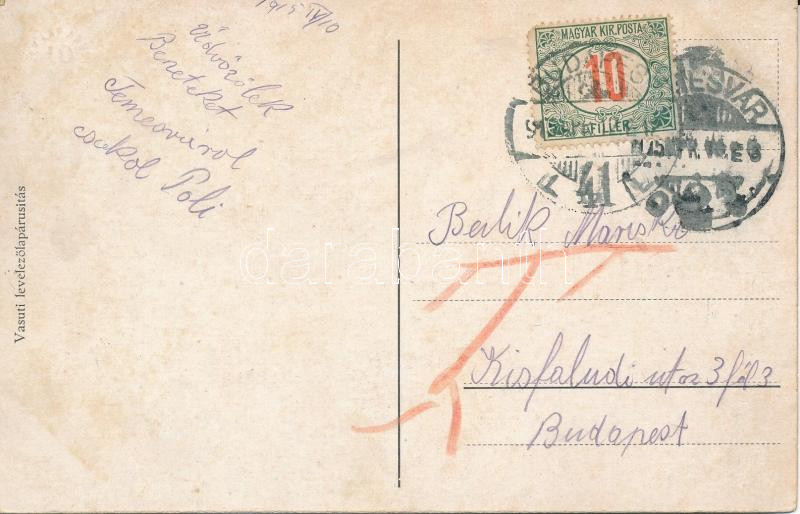 1915 IV/10
Üdvözölek
Benneteket
Temesvárol
csokol Poli
Vasuti levelezőlapárusitás
MAGYAR KIR. POSTA
10
FILLÉR
41
Berlik Mariska
Kisfaludi utca 3 föl 3
Budapest
darabanth